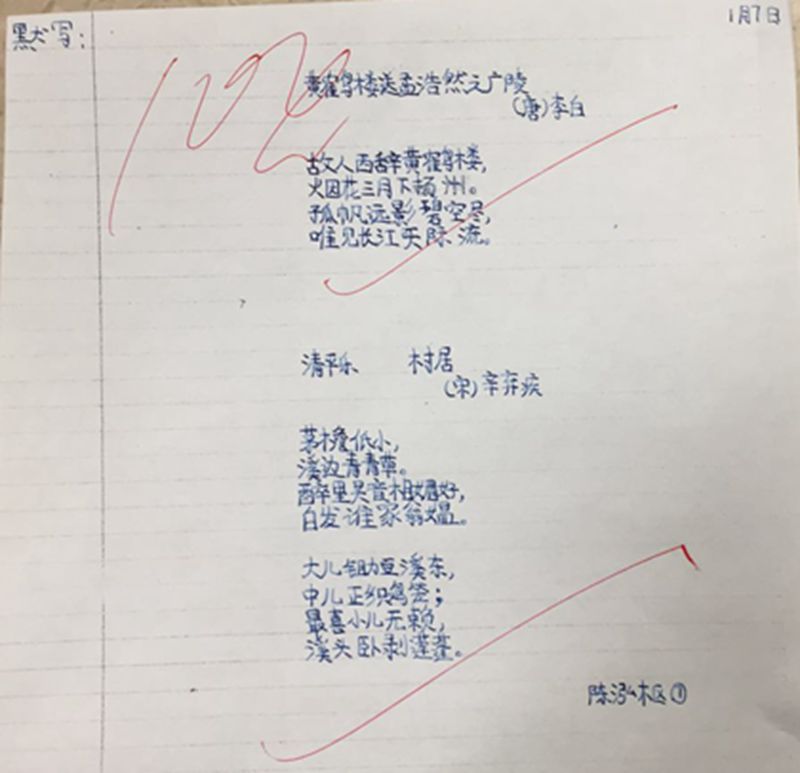 1月7日
默写:
黄鹤楼送孟浩然之广陵
(唐)李白
故人西辞黄鹤楼,
烟花三月下扬州。
孤帆远影碧空尽,
唯见长江天际流。
清平乐 村居
(宋)辛弃疾
茅檐低小,
溪边青青草。
醉里吴音相媚好,
白发谁家翁媪。
大儿锄豆溪东,
中儿正织鸡笼;
最喜小儿无赖,
溪头卧剥莲蓬。
陈泓枢①
100